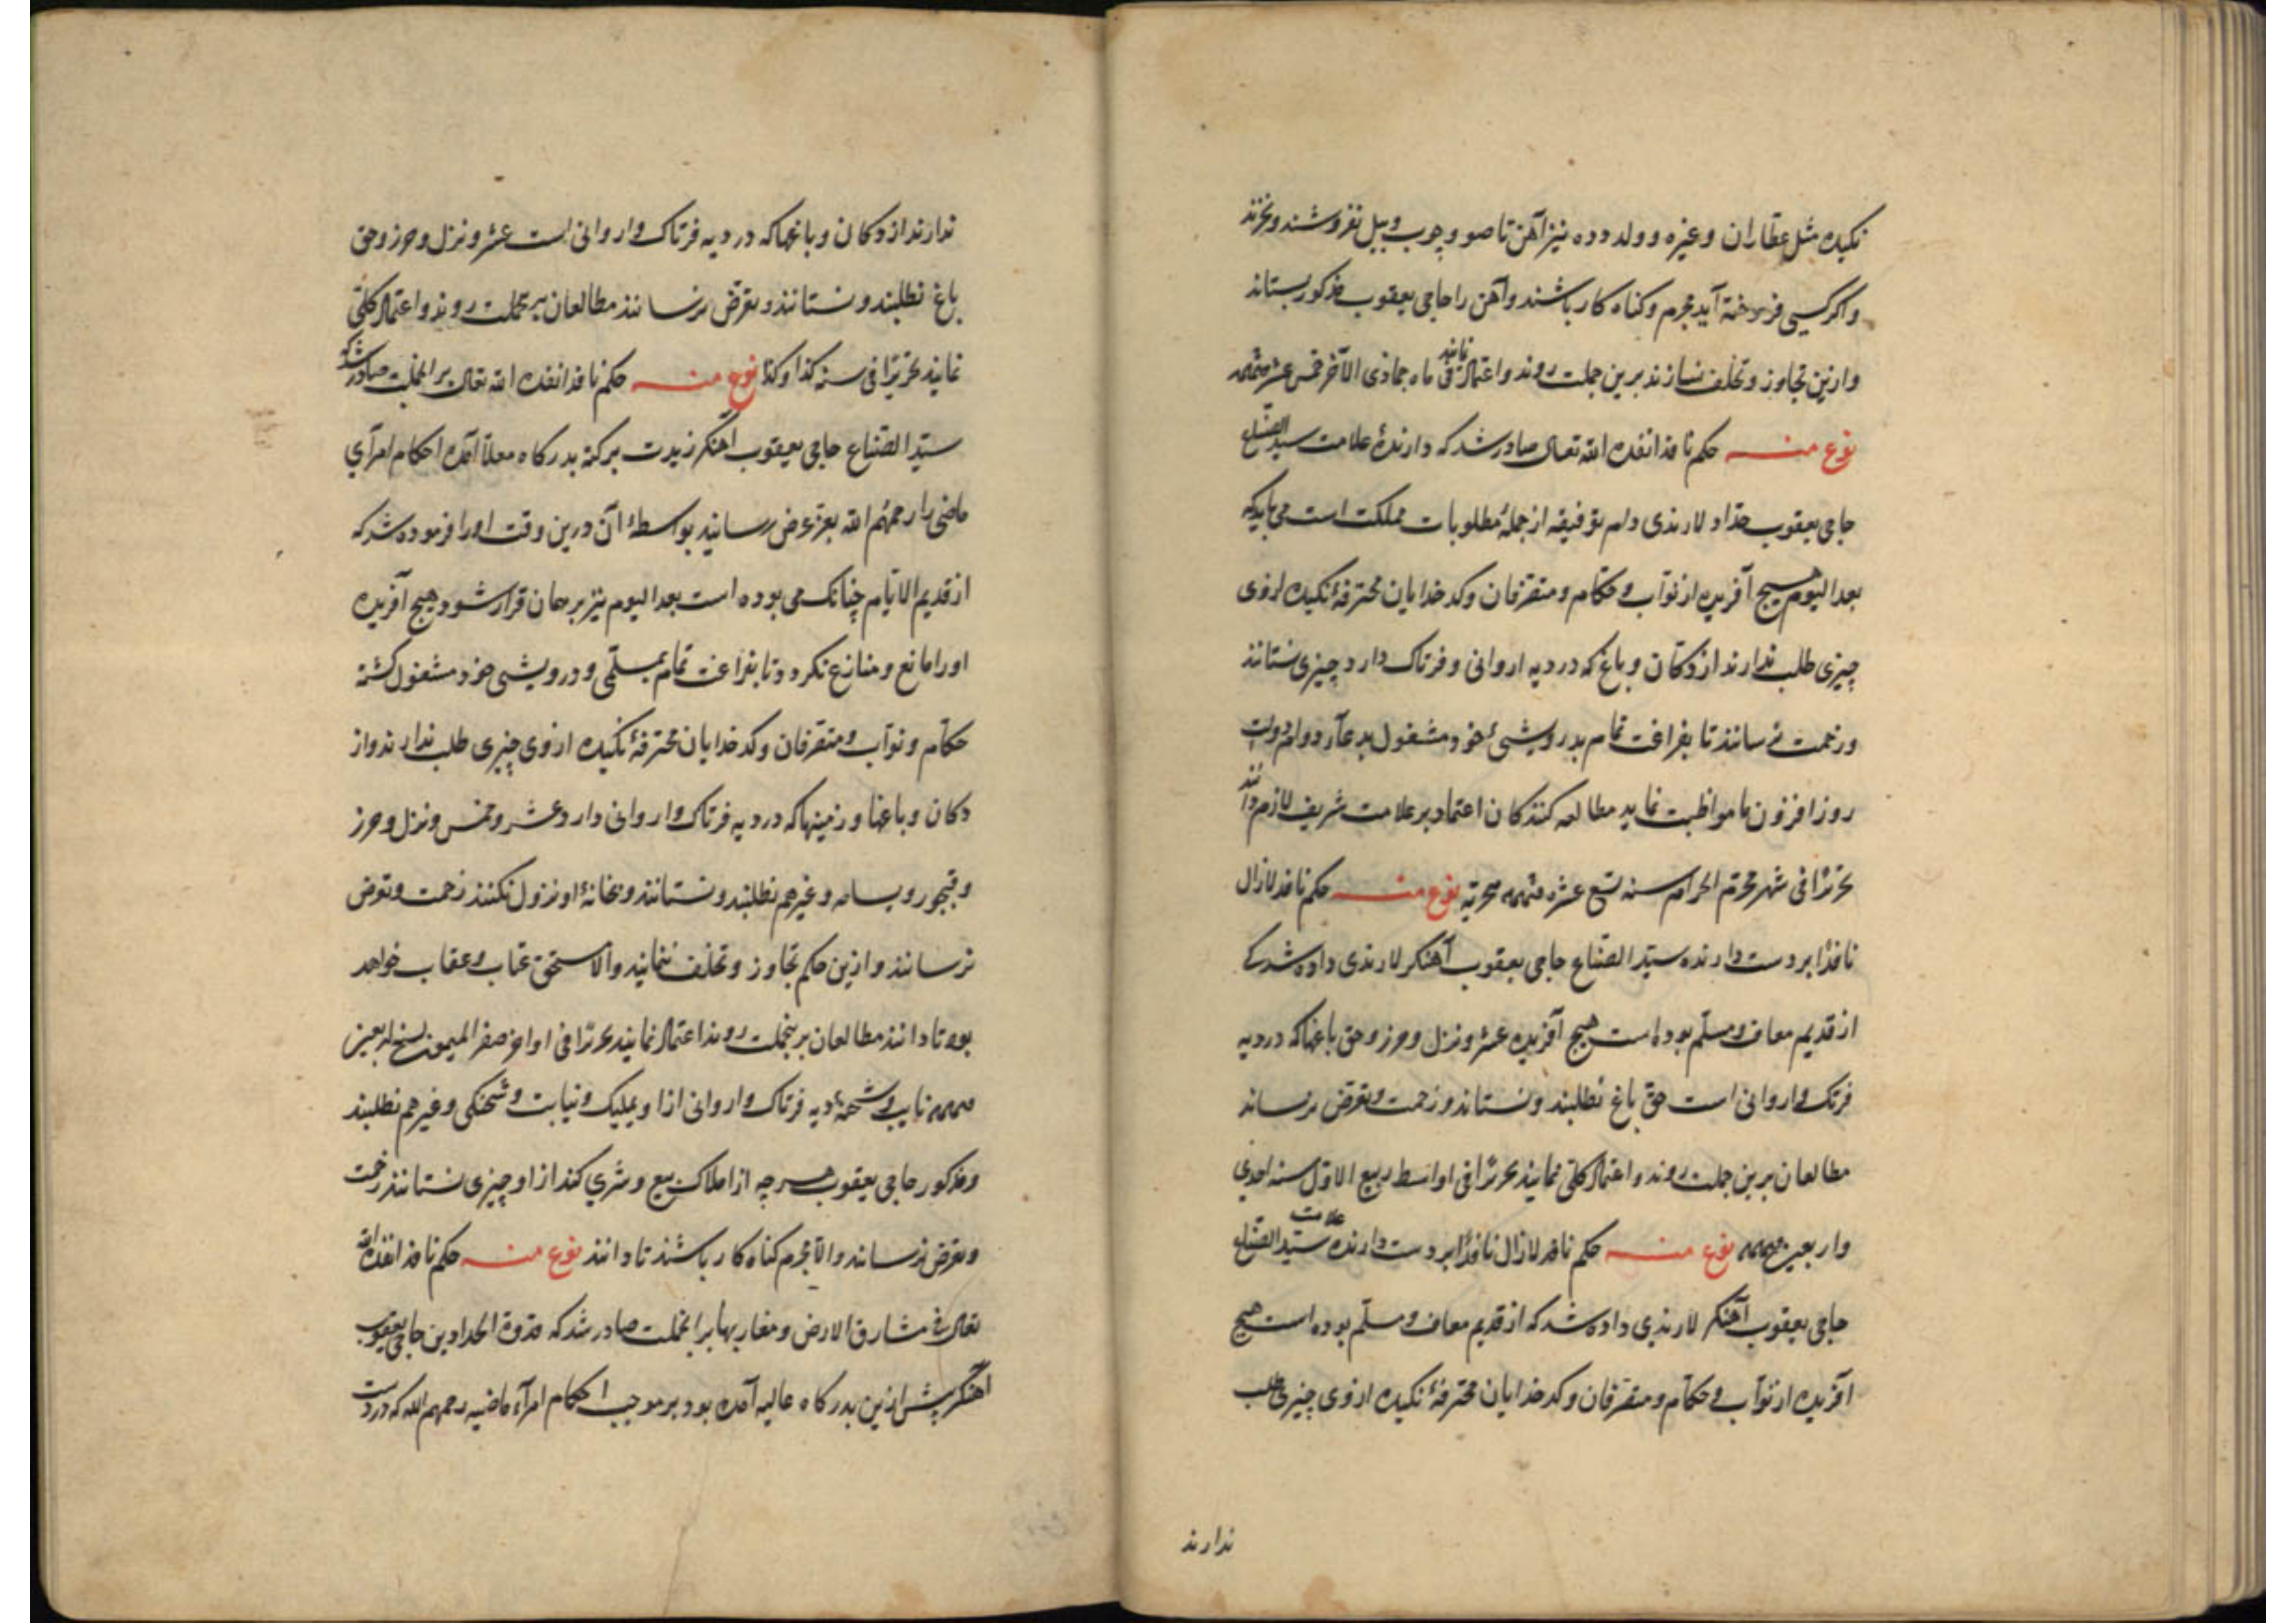 نکیده مثل عطاران و غیره و ولد دده نیز آهن تا صو و چوب و بیل نفروشند و نخرند
و اکر کسی فروخته آید مجرم و کناه کار باشند و آهن را حاجی یعقوب مذکور بستاند
و ازین تجاوز و تخلف نسازند برین جملت روند و اعتماد نمایند فی ماه جمادی الآخر خمس عشر
نوع منه حکم نافذ انفذه الله تعالی صادر شد که دارندهٔ علامت سید الصناع
حاجی یعقوب حداد لارندی دام توفیقه از جملهٔ مطلوبات مملکت است می باید که
بعد الیوم هیچ آفریده از نوّاب و حکّام و متصرفان و کدخدایان محترفهٔ نکیده ازوی
چیزی طلب ندارند از دکان و باغ که در دیه اروانی و فرتاک دارد چیزی نستانند
و زحمت نرسانند تا بفراغت تمام بدرویشیٔ خود مشغول بدعآء دوام دولت
روز افزون ما مواظبت نماید مطالعه کنندکان اعتماد بر علامت شریف لازم دانند
تحریرًا فی شهر محرّم الحرام سنه تسع عشره هجریّه نوع منه حکم نافذ لازال
نافذًا بر دست دارنده سیّد الصنّاع حاجی یعقوب آهنکر لارندی داده شد که
از قدیم معاف و مسلّم بوده است هیچ آفریده عشر و نزل و حرز و حق باغها که در دیه
فرتک و اروانی است حق باغ نطلبند و نستاند و زحمت و تعرّض نرساند
مطالعان برین جملت روند و اعتماد کلّی نمایند تحریرًا فی اواسط ربیع الاوّل سنه احدی
و اربعین نوع منه حکم نافذ لازال نافذًا بر دست دارنده علامت سیّد الصنّاع
حاجی یعقوب آهنکر لارندی داده شد که از قدیم معاف و مسلّم بوده است هیچ
آفریده از نوّاب و حکّام و متصرّفان و کدخدایان محترفهٔ نکیده ازوی چیزی طلب
ندارند
ندارند از دکان و باغها که در دیه فرتاک و اروانی است عشر و نزل و حرز و حق
باغ نطلبند و نستانند و تعرّض نرسانند مطالعان بر جملت روند و اعتماد کلّی
نمایند تحریرًا فی سنه کذا و کذا نوع منه حکم نافذ انفذه الله تعالی بر انجملت صادر شد که
سیّد الصنّاع حاجی یعقوب آهنکر زیدت برکته بدرکاه معلّا آمده احکام امرآی
ماضی را رحمهم الله بعزّ عرض رسانید بواسطهٔ آن درین وقت او را فرموده شد که
از قدیم الایّام چنانک می بوده است بعد الیوم نیز بر همان قرار شود هیچ آفریده
او را مانع و منازع نکردد تا بفراغت تمام بمسلّمی و درویشی خود مشغول کشته
حکّام و نوّاب و متصرّفان و کدخدایان محترفهٔ نکیده ازوی چیزی طلب ندارند و از
دکان و باغها و زمینها که در دیه فرتاک و اروانی دارد عشر و خمس و نزل و حرز
و قبجور و و غیرهم نطلبند و نستانند و بخانهٔ او نزول نکنند زحمت و تعرّض
نرسانند و ازین حکم تجاوز و تخلف ننمایند و الا مستحق عتاب و عقاب خواهد
بود تا دانند مطالعان برینجملت روند اعتماد نمایند تحریرًا فی اواخر صفر المیمون سنه اربعین
نایب و شحنهٔ دیه فرتاک و اروانی ازا و بملیک و نیابت و شحنکی و غیرهم نطلبند
و مذکور حاجی یعقوب هرچه از املاک بیع و شری کند از او چیزی نستانند زحمت
و تعرّض نرسانند و الا مجرم کناه کار باشند تا دانند نوع منه حکم نافذ انفذه الله
تعالی فی مشارق الارض و مغاربها بر انجملت صادر شد که قدوة الحدادین حاجی یعقوب
آهنکر پیش ازین بدرکاه عالیه آمده بود بر موجب احکام امرآء ماضیه رحمهم الله که در دست